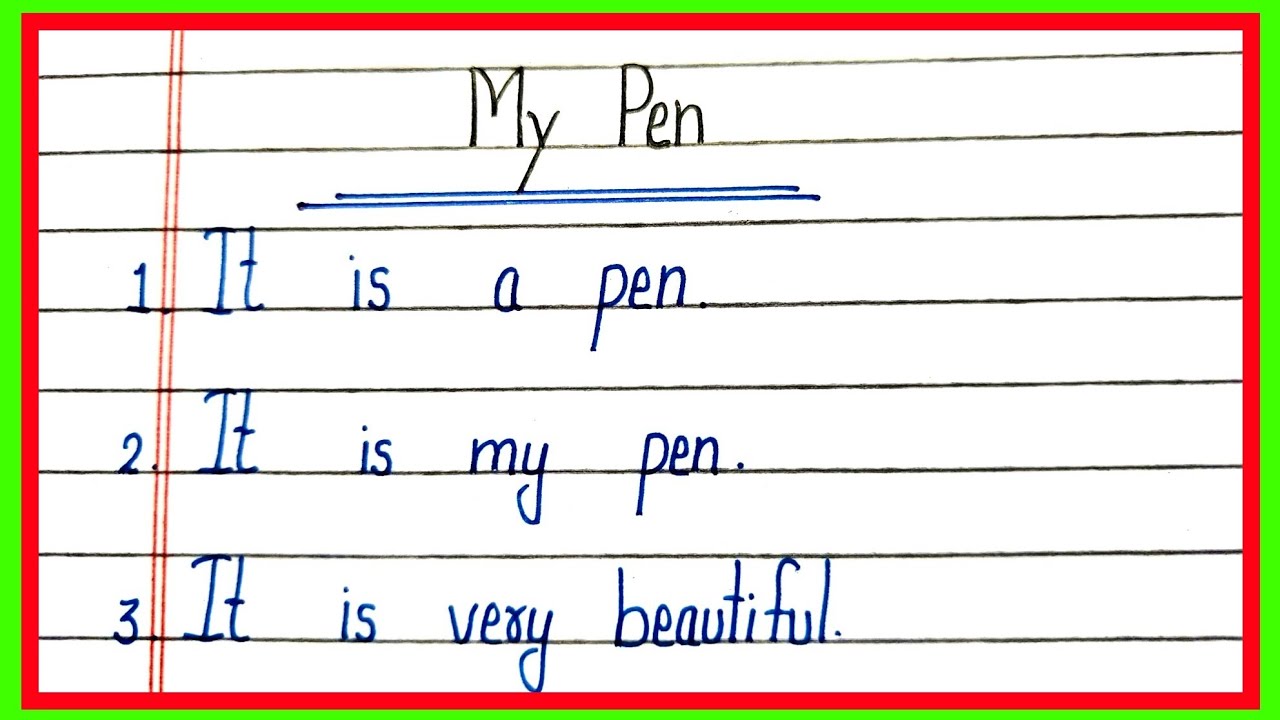 My Pen
1. It is a pen.
2. It is my pen.
3. It is very beautiful.